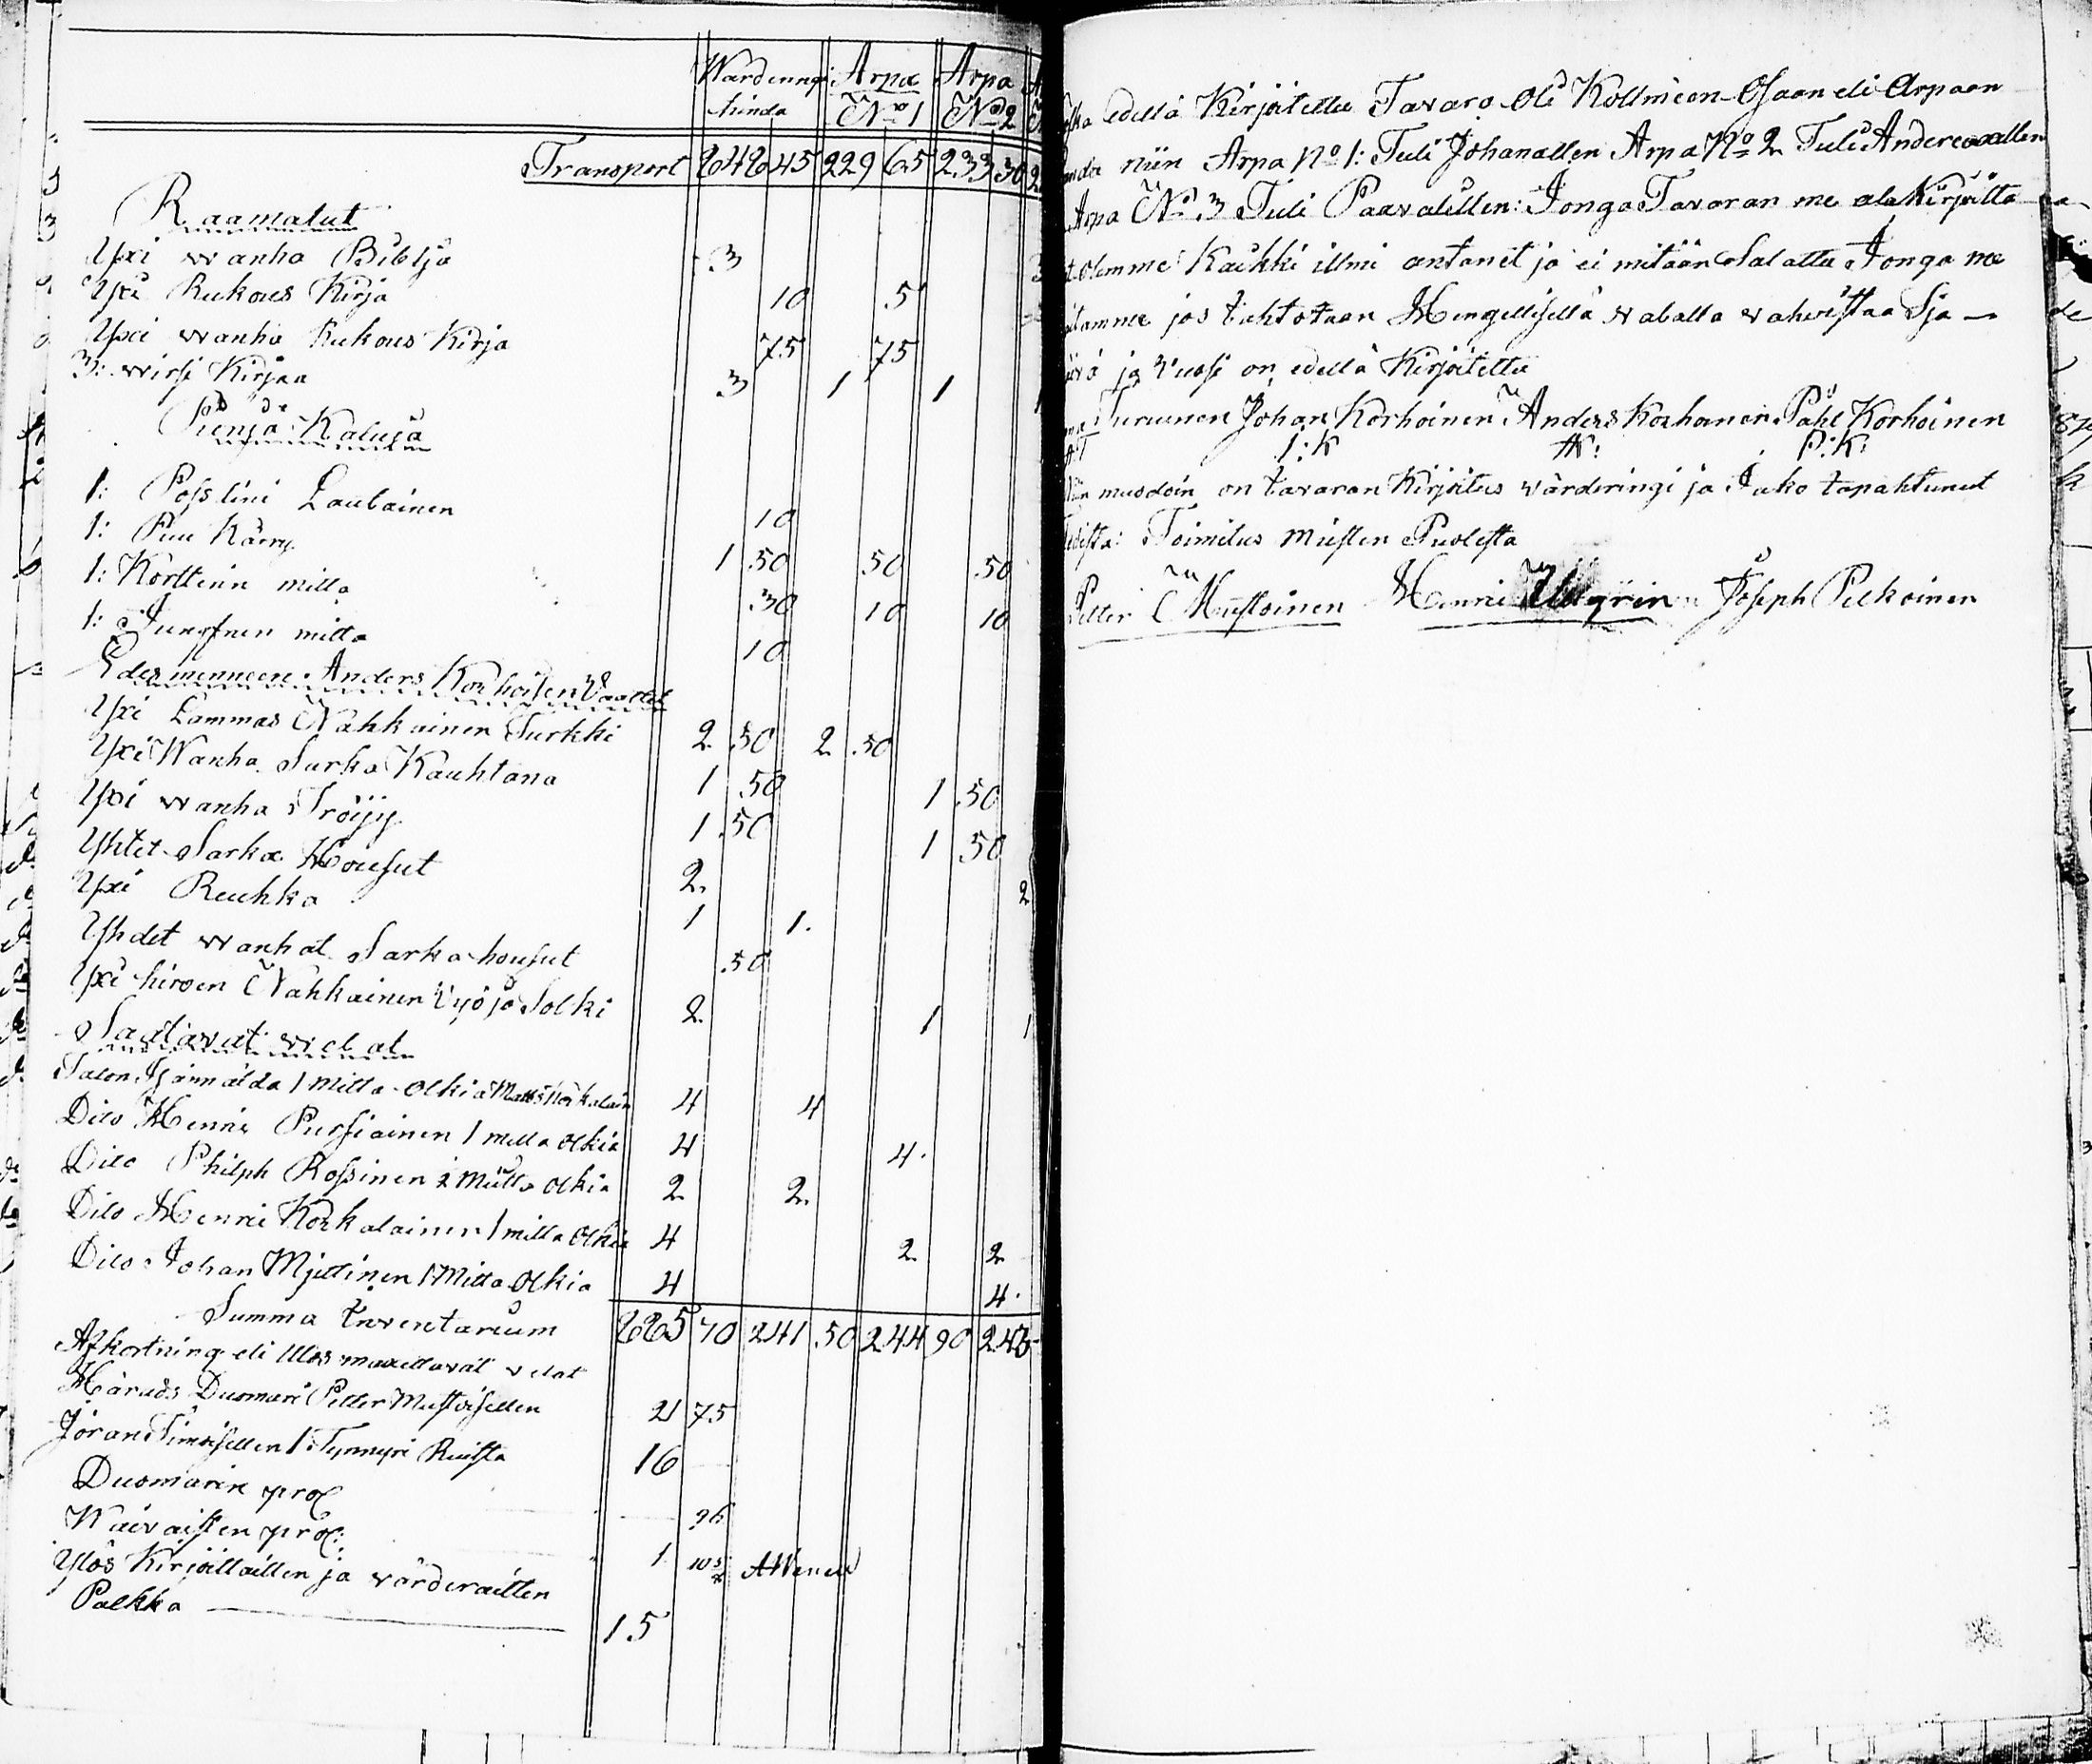 Wärderingi Arpa Arpa
hinda No 1 No 2
Transport 646 45 229 65 233 30
Raamatut
Yxi wanha Biblja 3
Yxi Rukous Kirja 10 5
Yxi wanha Rukous Kirja 75 75
3: wirsi Kirjaa 3 1 1
Kaluja
1: Posslini Laubainen 10
1: Puu Käry 1 50 50 50
1: Korttinn mitta 30 10 10
1: Jungfrun mitta 10
Edesmenneen Anders Korhoisen Vaattet
Yxi Lammas Nahkainen Turkki 2 50 2 50
Yxi Wanha Sarka Kauhtana 1 50 1 50
Yxi wanha Tröijy 1 50 1 50
Yhtet Sarka Housut 2. 2
Yxi Reuhka 1 1.
Yhdet wanhat Sarka housut 50
Yxi hirven Nahkainen Vyö ja Solki 2 1 1
Saatavat velat
Talon Isännäldä 1 Mitta olkia Matts Korkalain 4 4
Dito Henrik Pursiainen 1 mitta olkia 4 4.
Dito Philph Rossinen ½ Mitta olkia 2 2.
Dito Henric Korkalainen 1 mitta olkia 4 2 2
Dito Johan Mjettinen 1 Mitta olkia 4 4.
Summa Inventarium 665 70 241 50 244 90 243
Afkortning eli Ulos maxettavat velat
Härads Duomari Petter Mustoisellen 21 75
Jöran Timoisellen 1 Tynnyri Ruista 16
Duomarin proc 96
Waivaisten proc: 1 10
Ylös Kirjoittaillen ja värderaitten
Palkka 15
edellä Kirjoitettu Tavara Oli Kollmeen Osaan eli Arpaan
niin Arpa No 1: Tuli Johanallen Arpa No 2 Tuli Andercxellen
Arpa No 3 Tuli Paavalillen: Jonga Tavaran me ala Kirjoitta
olemme Kaikki illmi antanet ja ei mitään Salattu Jonga me
jos tahtotaan Hengellisellä valalla vahvistaa Sja
ja Vuosi on edellä Kirjoitettu
Turunen Johan Korhoinen Anders Korhonen Påhl Korhoinen
A:T I:K AK: P:K:
muodoin on tavaran Kirjoitus värderingi ja Jako tapahtunut
Toimitus Miesten Puolesta
Petter Mustoinen Henric Joseph Pelkoinen